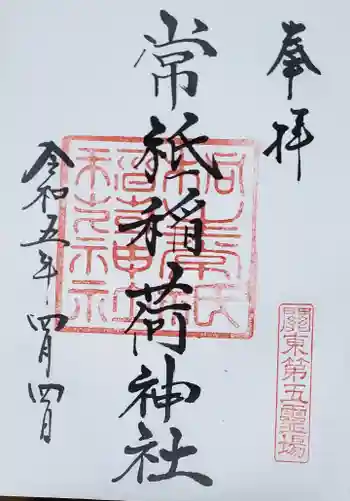 奉拝
關東第五霊場
常祇稲荷神社
令和五年四月四日